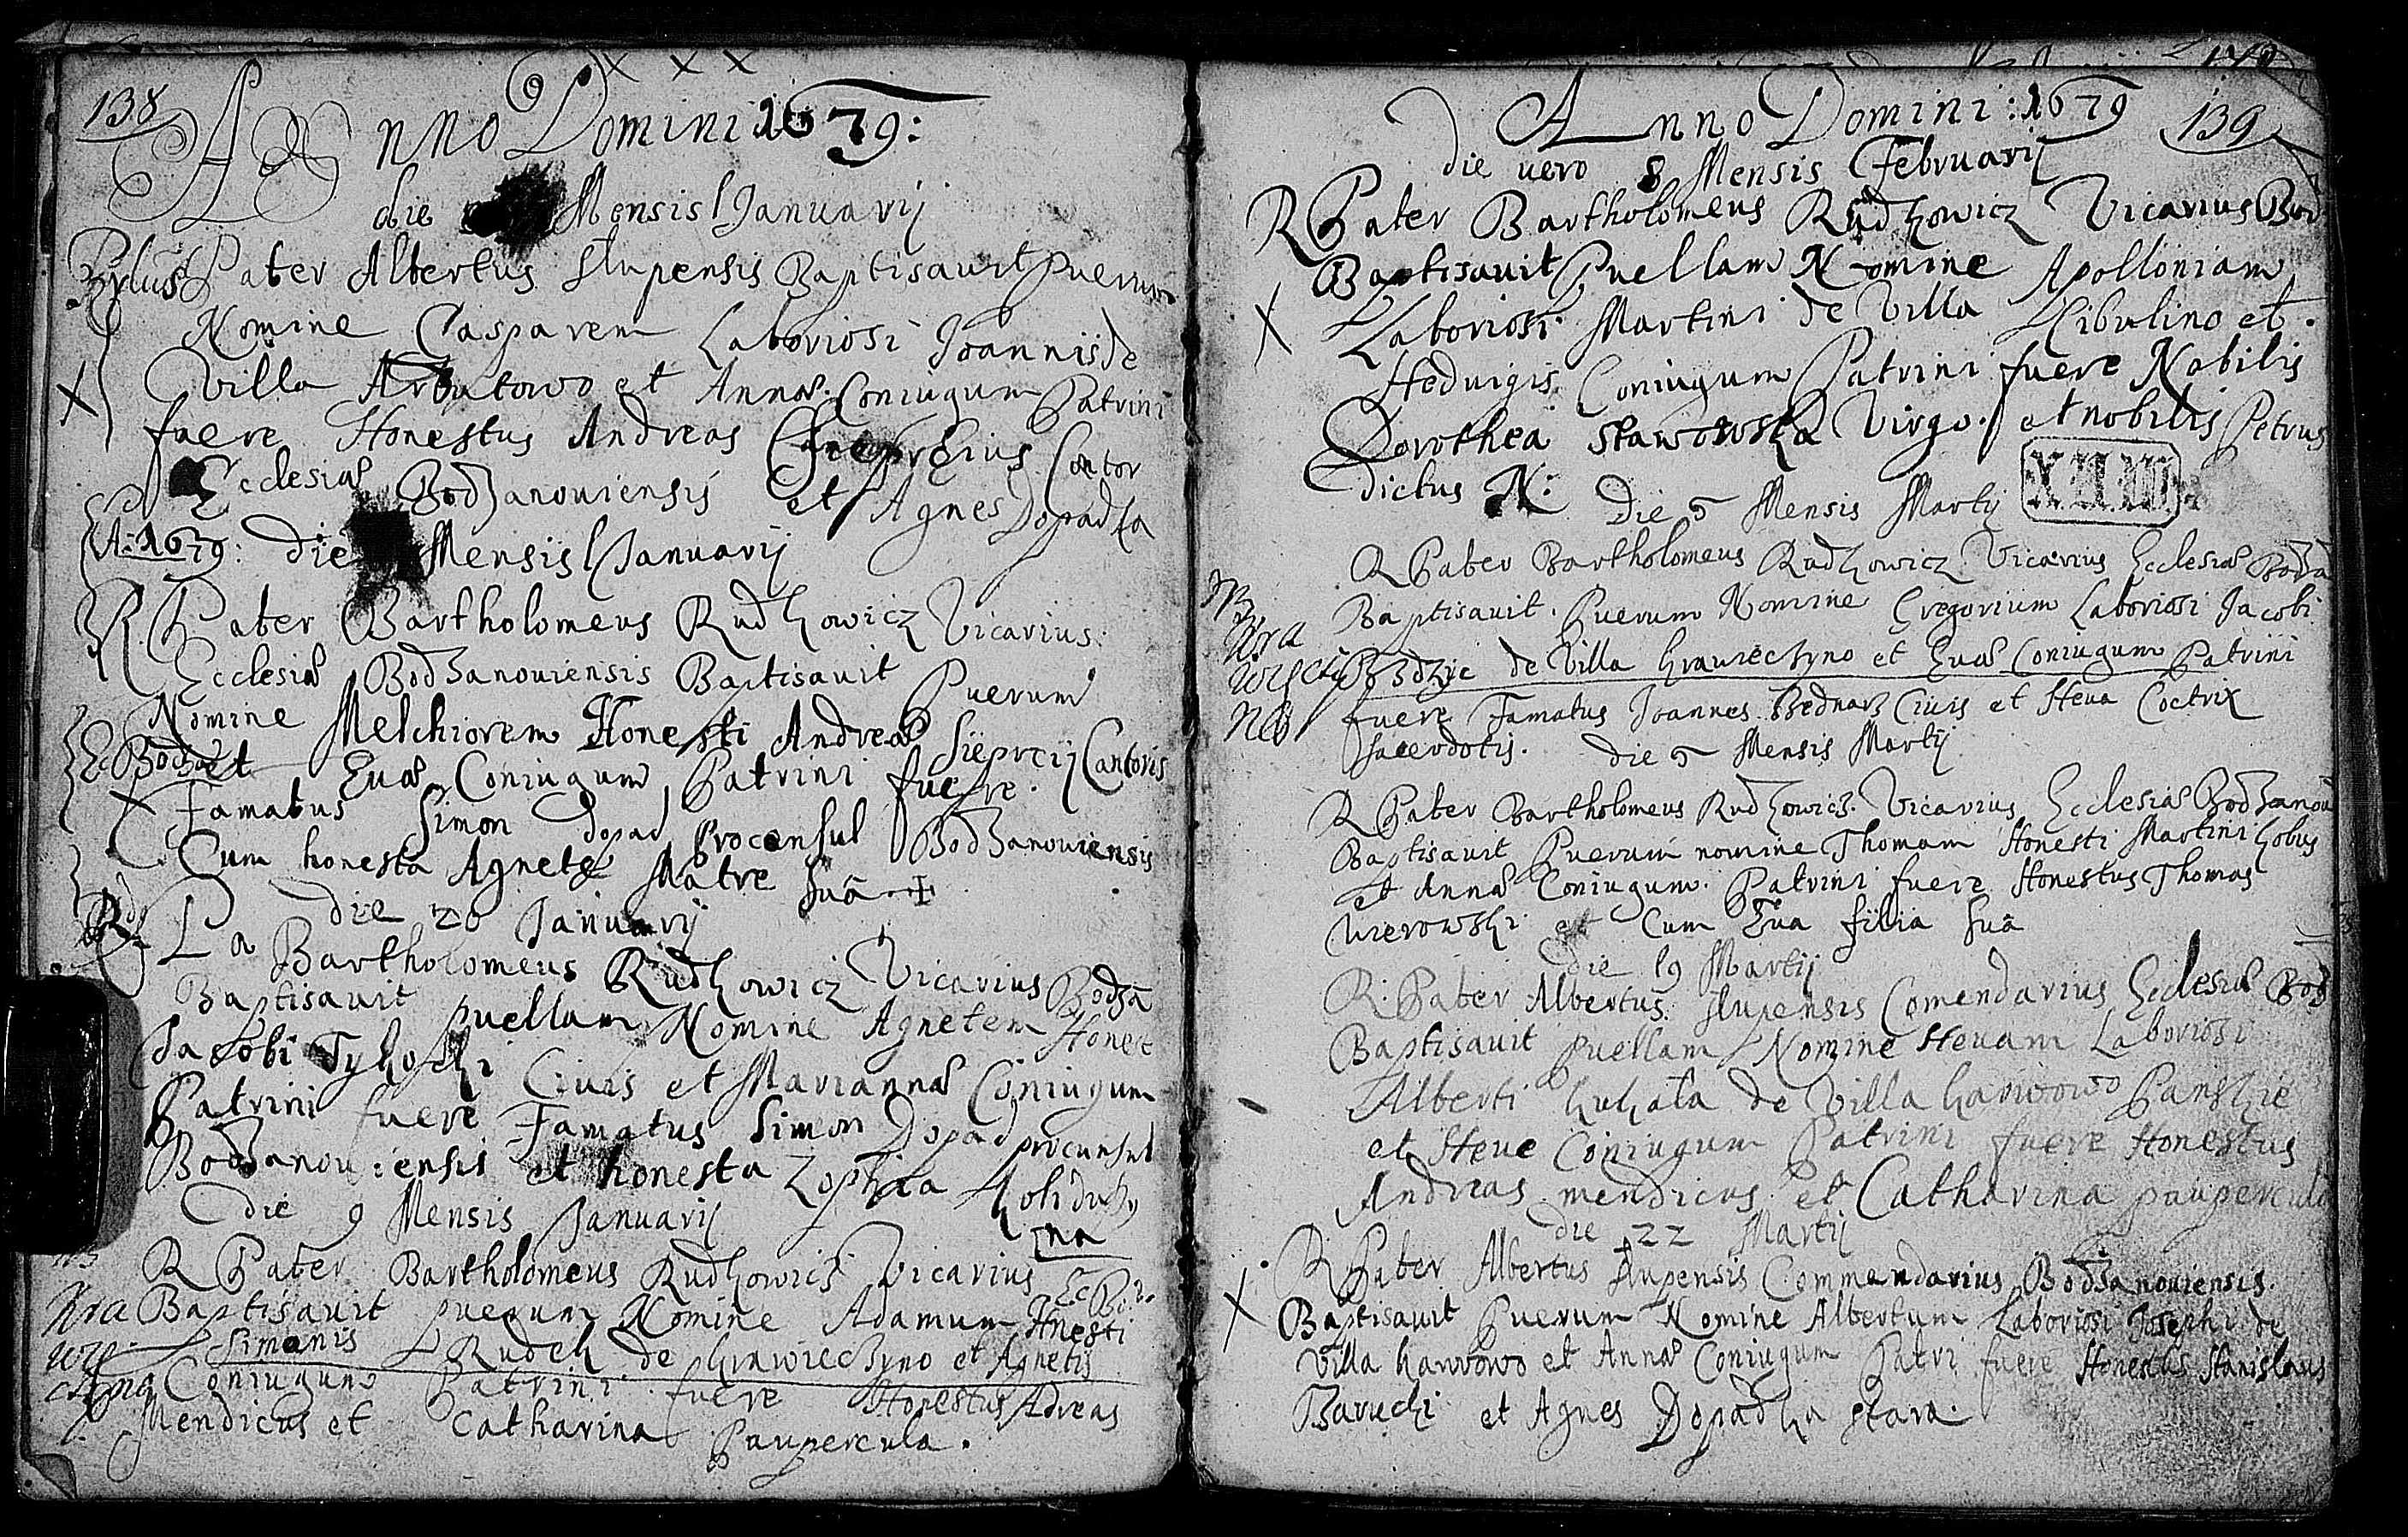 138
Anno Domini 1679:
die Mensis Januarij
Pater Albertus Slupensis Baptisauit Puerum
Nomine Casparem Laboriosi Joannis de
Villa Arbutowo et Annæ Coniugum Patrini
fuere Honestus Andreas Cantor
Ecclesiæ Bodzanouiensis et Agnes Dopadka
A: 1679: die Mensis Januarij
R. Pater Bartholomeus Rudkowicz Vicarius
Ecclesiæ Bodzanouiensis Baptisauit Puerum
Nomine Melchiorem Honesti Andreæ Sieprcij Cantoris
Ec Bodza et Euæ Coniugum Patrini fuere
Famatus Simon Dopad Proconsul Bodzanouiensis
Cum honesta Agnete Matre Suâ
die 20 Januarij
Pa Bartholomeus Rudkowicz Vicarius Bodza
Baptisauit puellam Nomine Agnetem Honest
Jacobi Ciuis et Mariannæ Coniugum
Patrini fuere Famatus Simon Dopad procunsul
Bodzanouiensis et honesta Zophia
na
die 9 Mensis Januarij
R Pater Bartholomeus Rudkowicz Vicarius Ec Bo
Baptisauit puerum Nomine Adamum Hnesti
Simonis Rudek de Krawieczyno et Agnetis
Coniugum Patrini fuere Honestus Adreas
Mendicus et Catharina Paupercula.
Anno Domini: 1679 139
die uero 8 Mensis Februarij
R Pater Bartholomeus Rudkowicz Vicarius Bod
Baptisauit Puellam Nomine Apolloniam
Laboriosi Martini de Villa Cibulino et
Heduigis Coniugum Patrini fuere Nobilis
Dorothea Stawowska Virgo et nobilis Petrus
dictus N:
Die 5 Mensis Martij
R Pater Bartholomeus Rudkowicz Vicarius Ecclesiæ Bodza
Baptisauit Puerum Nomine Gregorium Laboriosi Jacobi
de Villa Krawieczyno et Euæ Coniugum Patrini
Kra
wiecty
no
fuere Famatus Joannes Bednarz Ciuis et Heua Coctrix
sacerdotis.
die 5 Mensis Martij
R Pater Bartholomeus Rudkowicz Vicarius Ecclesiæ Bodzanou
Baptisauit Puerum nomine Thomam Honesti Martini Gobus
et Annæ Coniugum Patrini fuere Honestus Thomas
Wierowski et Cum Eua filia Suâ
die 19 Martij
R. Pater Albertus Slupensis Comendarius Ecclesiæ Bod
Baptisauit Puellam Nomine Heuam Laboriosi
Alberti Kukała de Villa Karwowo Panskie
et Heue Coniugum Patrini fuere Honestus
Andreas mendicus et Catharina paupercula
die 22 Martij
R Pater Albertus Slupensis Commendarius Bodzanouiensis.
Baptisauit Puerum Nomine Albertum Laboriosi Josephi de
Villa Karwowo et Annæ Coniugum Patri fuere Honestus Stanislaus
Barucki et Agnes Dopadka stara.